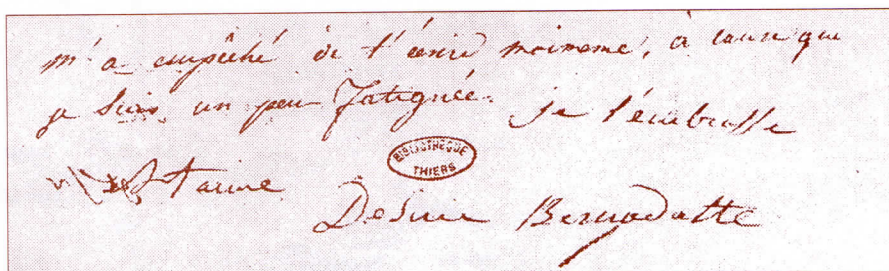 m'a empêché de t'écrire moimeme, à cause que
je suis un peu fatignée. je t'embrasse
BIBLIOTHEQUE
THIERS
Desirée Bernadotte